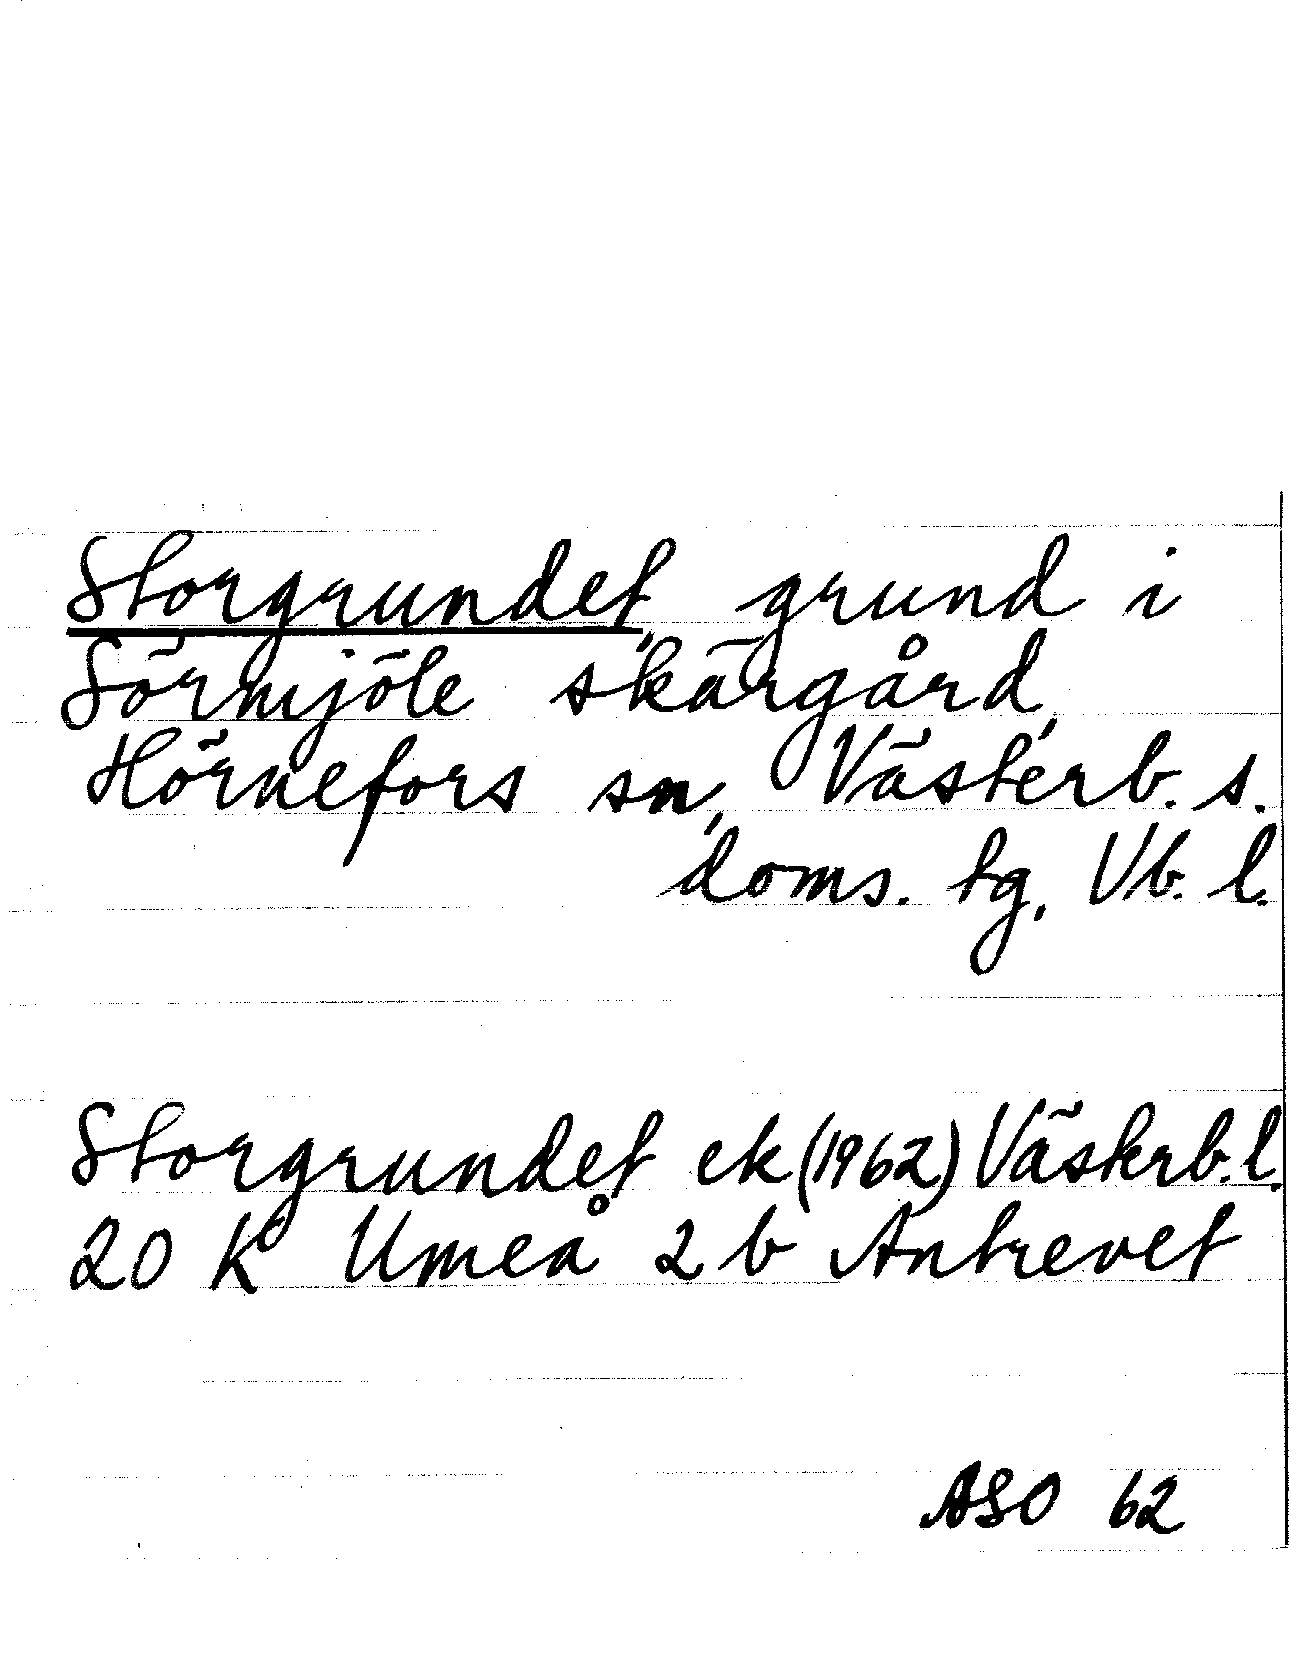 Storgrundet, grund i
Sörmjöle skärgård,
Hörnefors sn, Västerb. s.
doms. tg, Vb. l.
Storgrundet ek (1962) Västerb. l.
20 K Umeå 2 b Antrevet
ASO 62